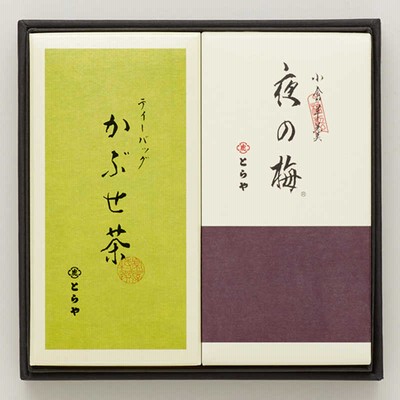 小倉羊羹
夜の梅
とらや
ティーバッグ
かぶせ茶
とらや